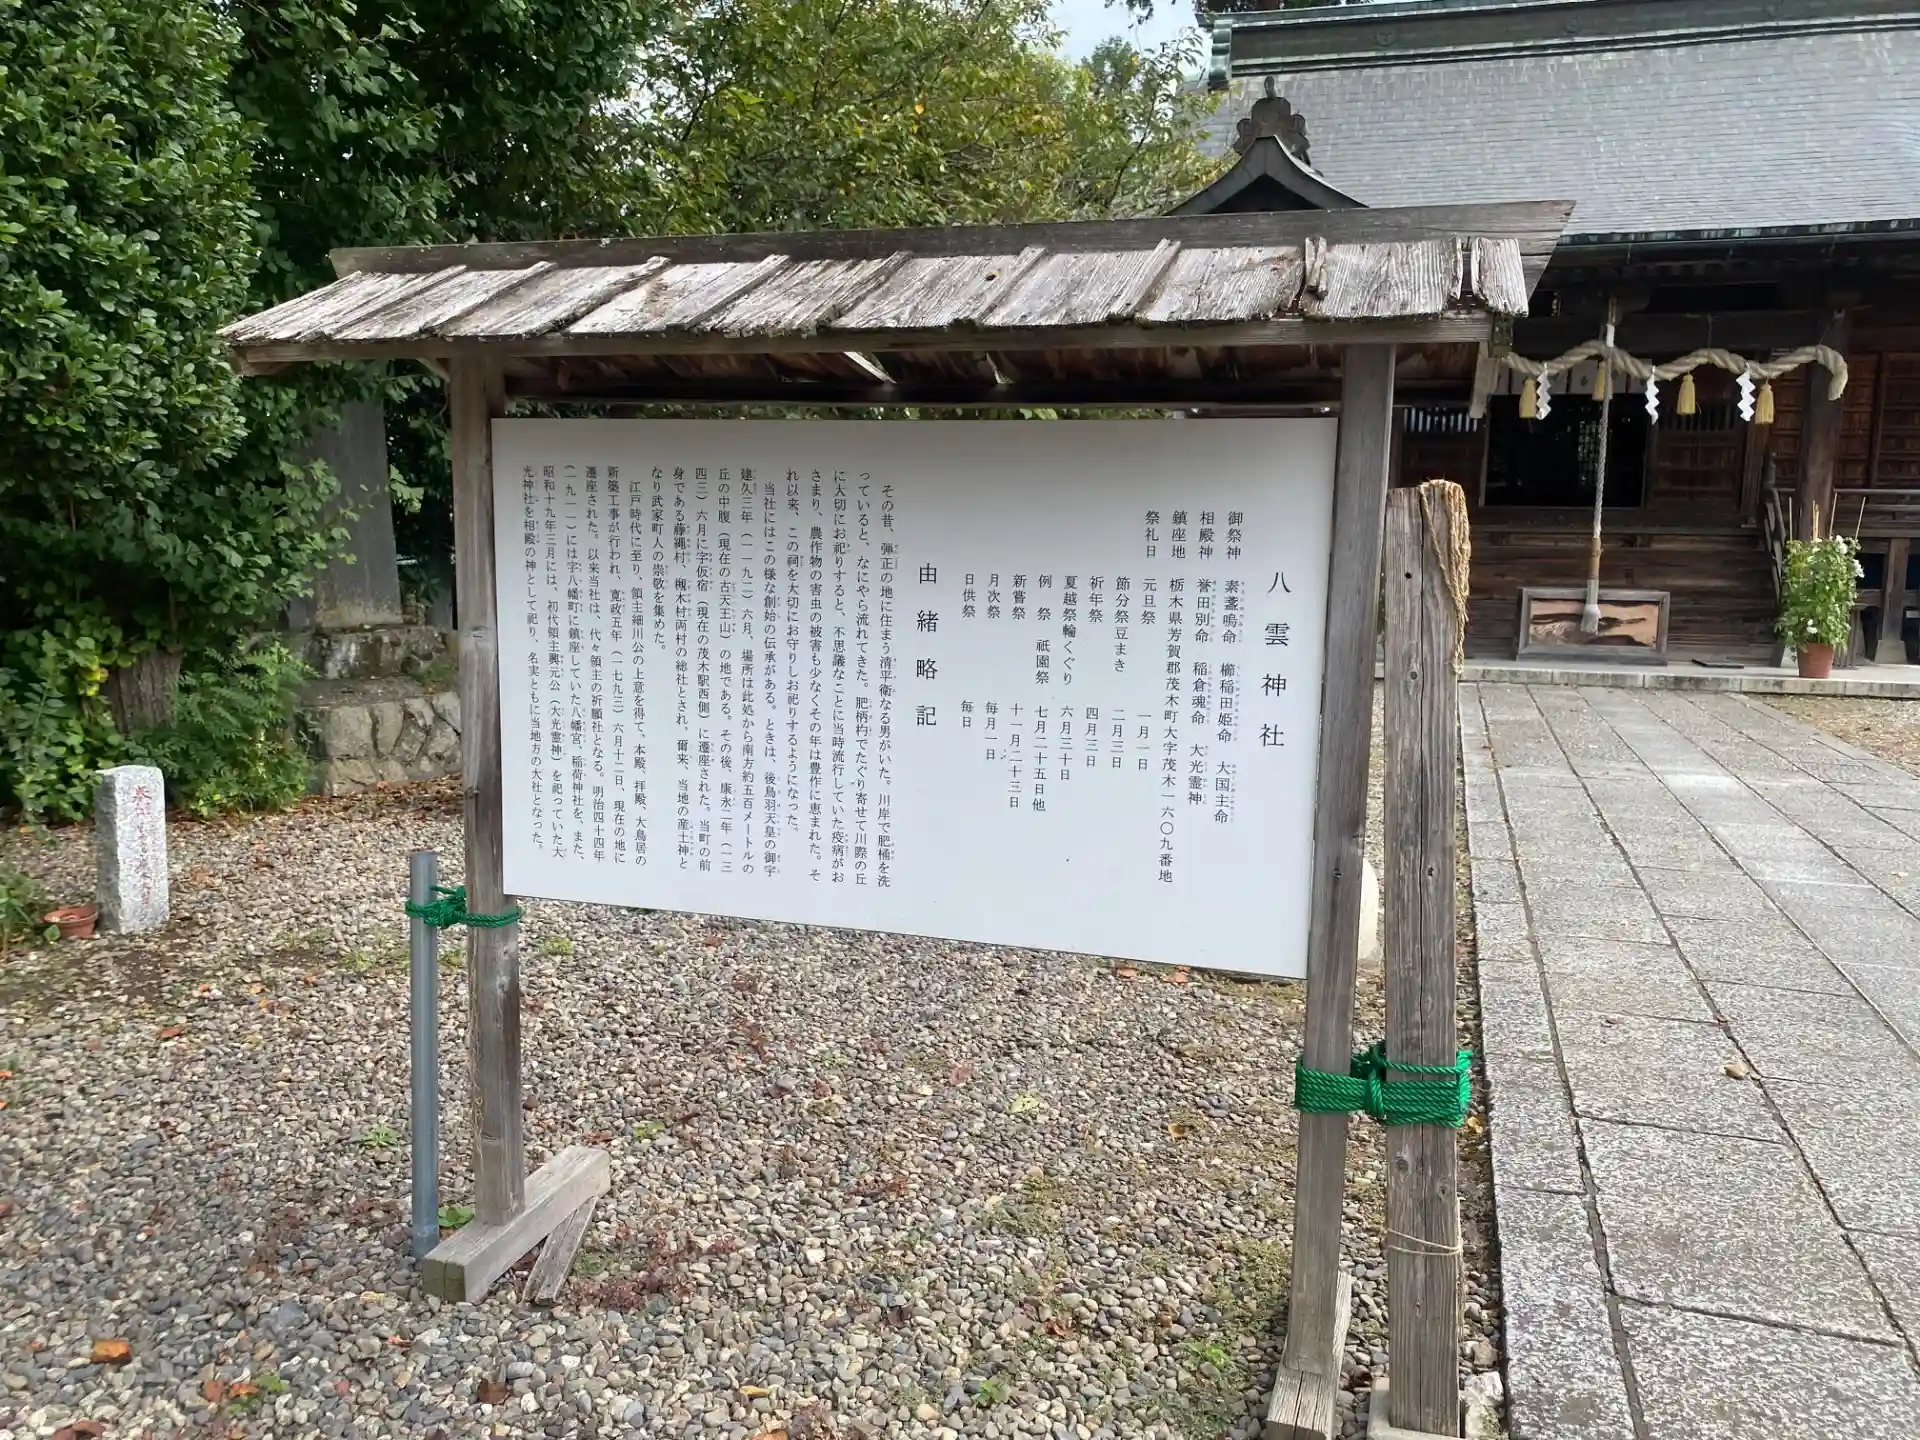 八雲神社
御祭神 素戔嗚命 櫛稲田姫命 大国主命
相殿神 誉田別命 稲倉魂命 大光霊神
鎮座地 栃木県芳賀郡茂木町大字茂木一六〇九番地
祭礼日 元旦祭 一月一日
節分祭豆まき 二月三日
祈年祭 四月三日
夏越祭輪くぐり 六月三十日
例祭 祇園祭 七月二十五日他
新嘗祭 十一月二十三日
月次祭 毎月一日
日供祭 毎日
由緒略記
その昔、弾正の地に住まう清平衛なる男がいた。川岸で肥桶を洗
っていると、なにやら流れてきた。肥柄杓でたぐり寄せて川際の丘
に大切にお祀りすると、不思議なことに当時流行していた疫病がお
さまり、農作物の害虫の被害も少なくその年は豊作に恵まれた。そ
れ以来、この祠を大切にお守りしお祀りするようになった。
当社にはこの様な創始の伝承がある。ときは、後鳥羽天皇の御宇
建久三年(一一九二)六月、場所は此処から南方約五百メートルの
丘の中腹(現在の古天王山)の地である。その後、康永二年(一三
四三)六月に字仮宿(現在の茂木駅西側)に遷座された。当町の前
身である藤縄村、槻木村両村の総社とされ、爾来、当地の産土神と
なり武家町人の崇敬を集めた。
江戸時代に至り、領主細川公の上意を得て、本殿、拝殿、大鳥居の
新築工事が行われ、寛政五年(一七九三)六月十二日、現在の地に
遷座された。以来当社は、代々領主の祈願社となる。明治四十四年
(一九一一)には字八幡町に鎮座していた八幡宮、稲荷神社を、また、
昭和十九年三月には、初代領主興元公(大光霊神)を祀っていた大
光神社を相殿の神として祀り、名実ともに当地方の大社となった。